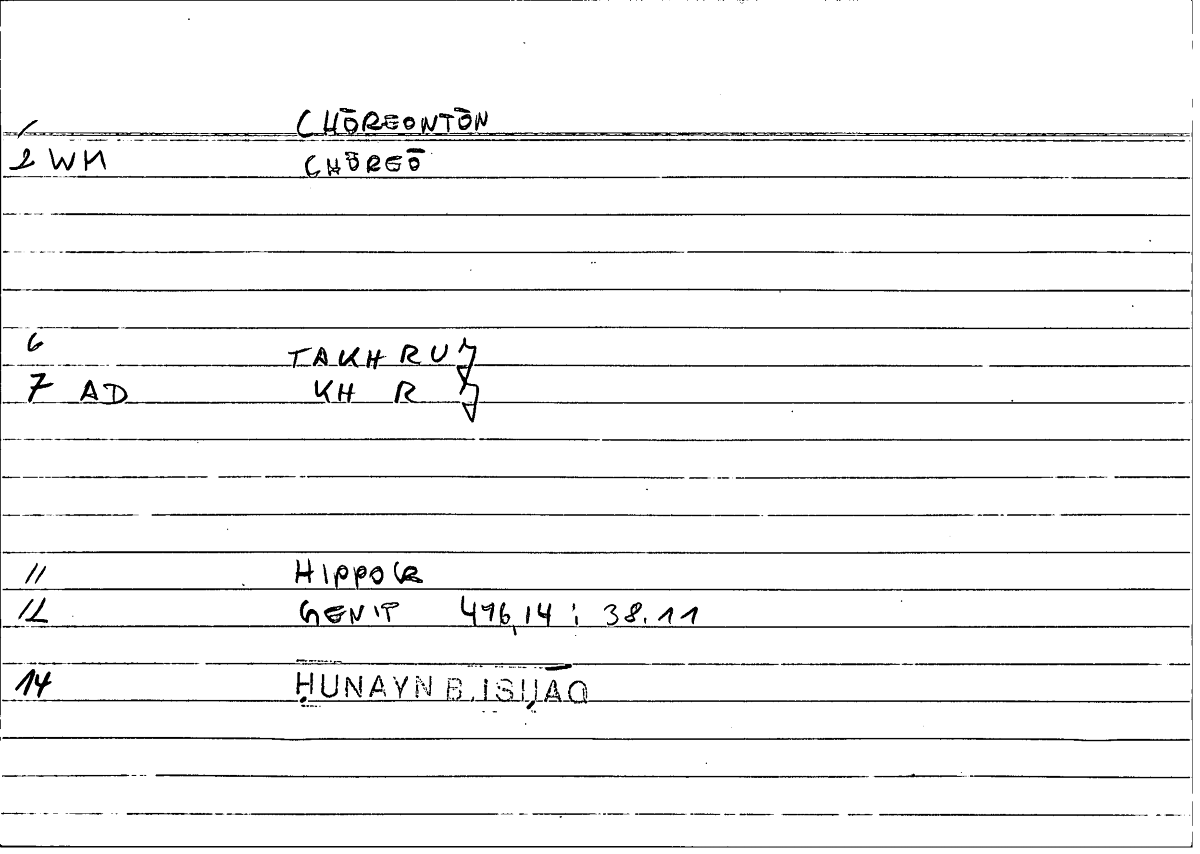 1 CHŌREONTŌN
2 WM CHŌREŌ
6 TAKHRUǦ
7 AD KH R Ǧ
11 HIPPOCR
12 GENIT 476,14 ; 38.11
14 ḤUNAYN B. ISḤĀQ